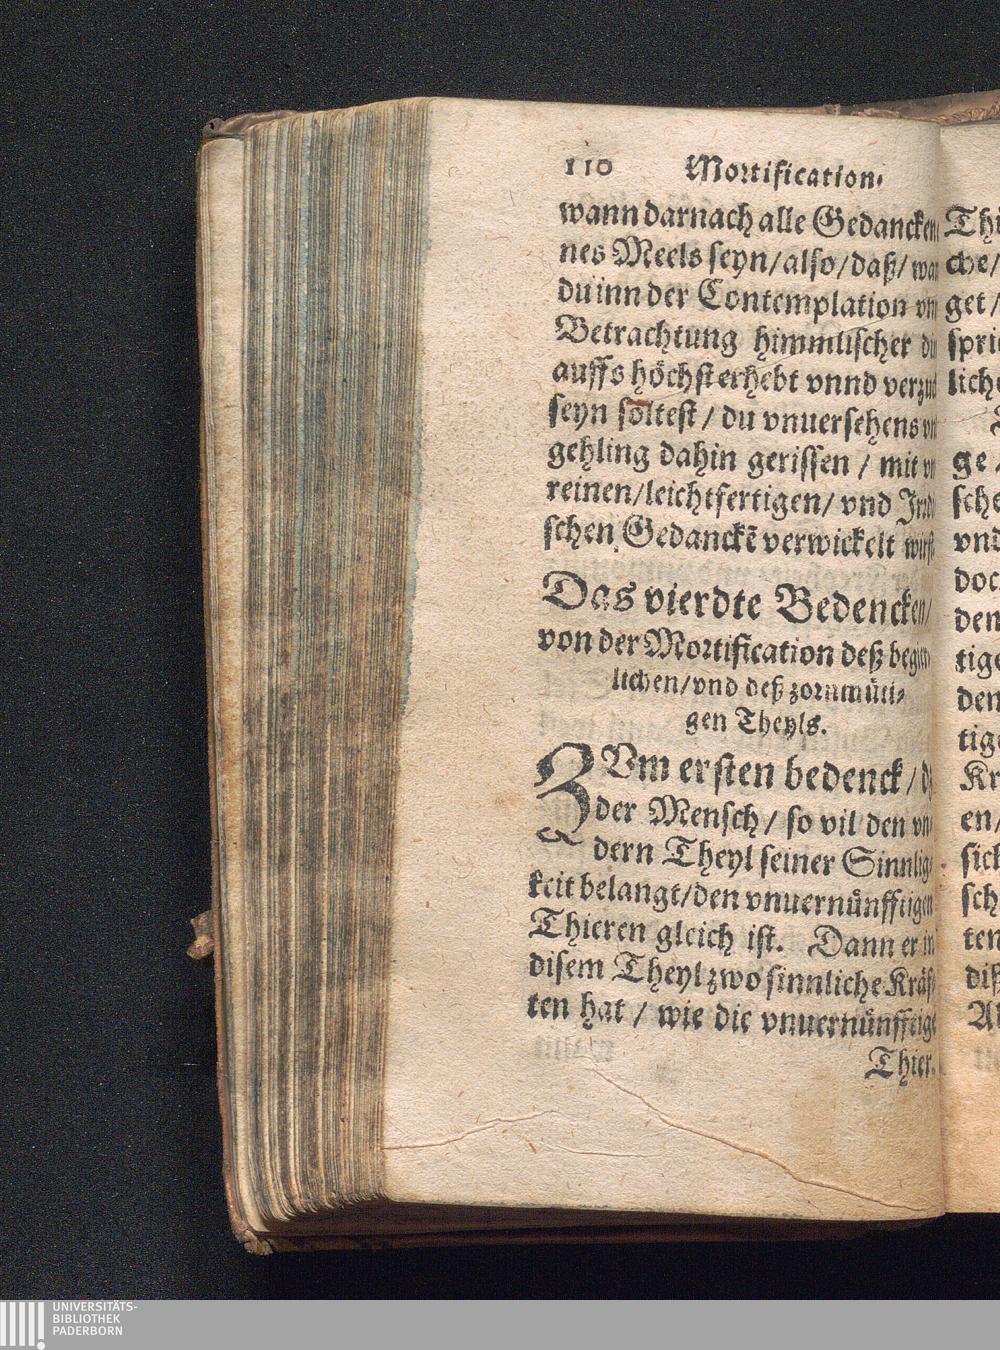 110 Mortification.
wann darnach alle Gedancken
nes Meels seyn/also/daß/
du inn der Contemplation
Betrachtung himmlischer
auffs höchst erhebt vnnd
seyn soltest / du vnuersehens
gehling dahin gerissen / mit
reinen/leichtfertigen/ vnd
schen Gedanckē verwickelt wirst
Das vierdte Bedencken/
von der Mortification deß
lichen/vnd deß zornmüti-
gen Theyls.
ZVm ersten bedenck /
der Mensch / so vil den
dern Theyl seiner
keit belangt/den vnuernünfftigen
Thieren gleich ist. Dann er
disem Theyl zwo sinnliche
ten hat / wie die
Thier.
che/
get /
ge
vnd
doc
den
tige
den
tige
Kr
en/
sich
sch
ten
diß
UNIVERSITÄTS-
BIBLIOTHEK
PADERBORN